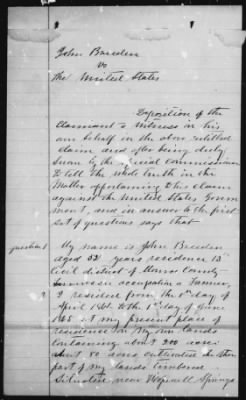 John Breeden
vs
The United States
Deposition of the
Claimant & Witness in his
own behalf in the above entitled
claim and after being duly
Sworn by the special commissioner
to tell the whole truth in the
Matter appertaining to his claim
against the United States Govern
ment, and in answer to the first
set of questions says that
question 1 My name is John Breeden
aged 52 years residence 13th
civil district of County
Tennessee occupation a Farmer,
2 I resided from the 1st day of
April 1861 to the 1st day of June
1865 at my present place of
residence on my own lands
containing about 200 acres
about 80 acres cultivated the other
part of my lands Timbered
Situated near Springs